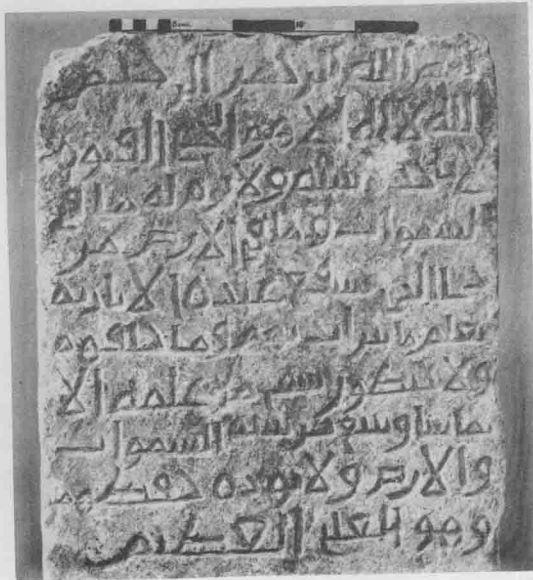 بسم الله الرحمن الرحيم
الله لا اله الا هو الحي القيوم
لا تاخذه سنه ولا نوم له ما في
السموات وما في الارض من
ذا الذي يشفع عنده الا باذنه
يعلم ما بين ايديهم وما خلفهم
ولا يحيطون بشي من علمه الا
بما شا وسع كرسيه السموات
والارض ولا يوده حفظهما
وهو العلي العظيم